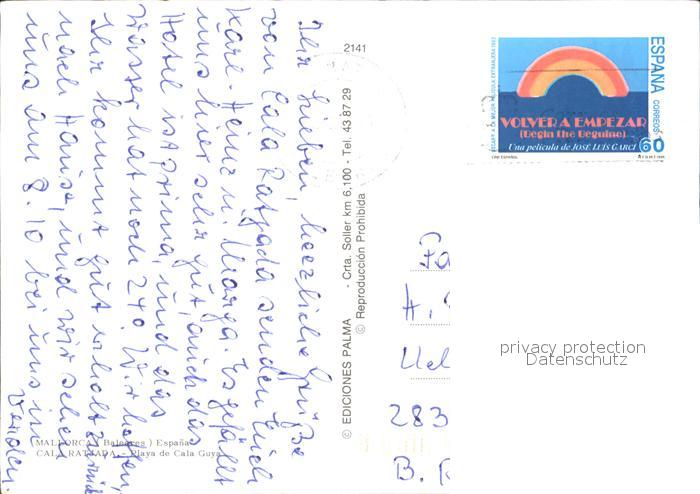 Ihr Lieben, herzliche Grüße
von Cala Ratjada senden Euch
Karl-Heinz u. Marga. Es gefällt
uns hier sehr gut, auch das
Hotel ist prima, und das
Wasser hat noch 24°. Wir hoffen,
Ihr kommt gut erholt zurück
nach Hause, und wir sehen
uns am 8.10 bei uns in
Verden.
(MALLORCA (Baleares) España
CALA RATJADA - Playa de Cala Guya
2141
© EDICIONES PALMA - Crta. Soller km 6,100 - Tel. 43 87 29
© Reproducción Prohibida
OSCAR A LA MEJOR PELICULA EXTRANJERA 1982
VOLVER A EMPEZAR
(Begin the Beguine)
Una película de JOSÉ LUÍS GARCÍ
CINE ESPAÑOL
ESPAÑA
CORREOS
60
Fa
H.
Uel
283
B. R
privacy protection
Datenschutz